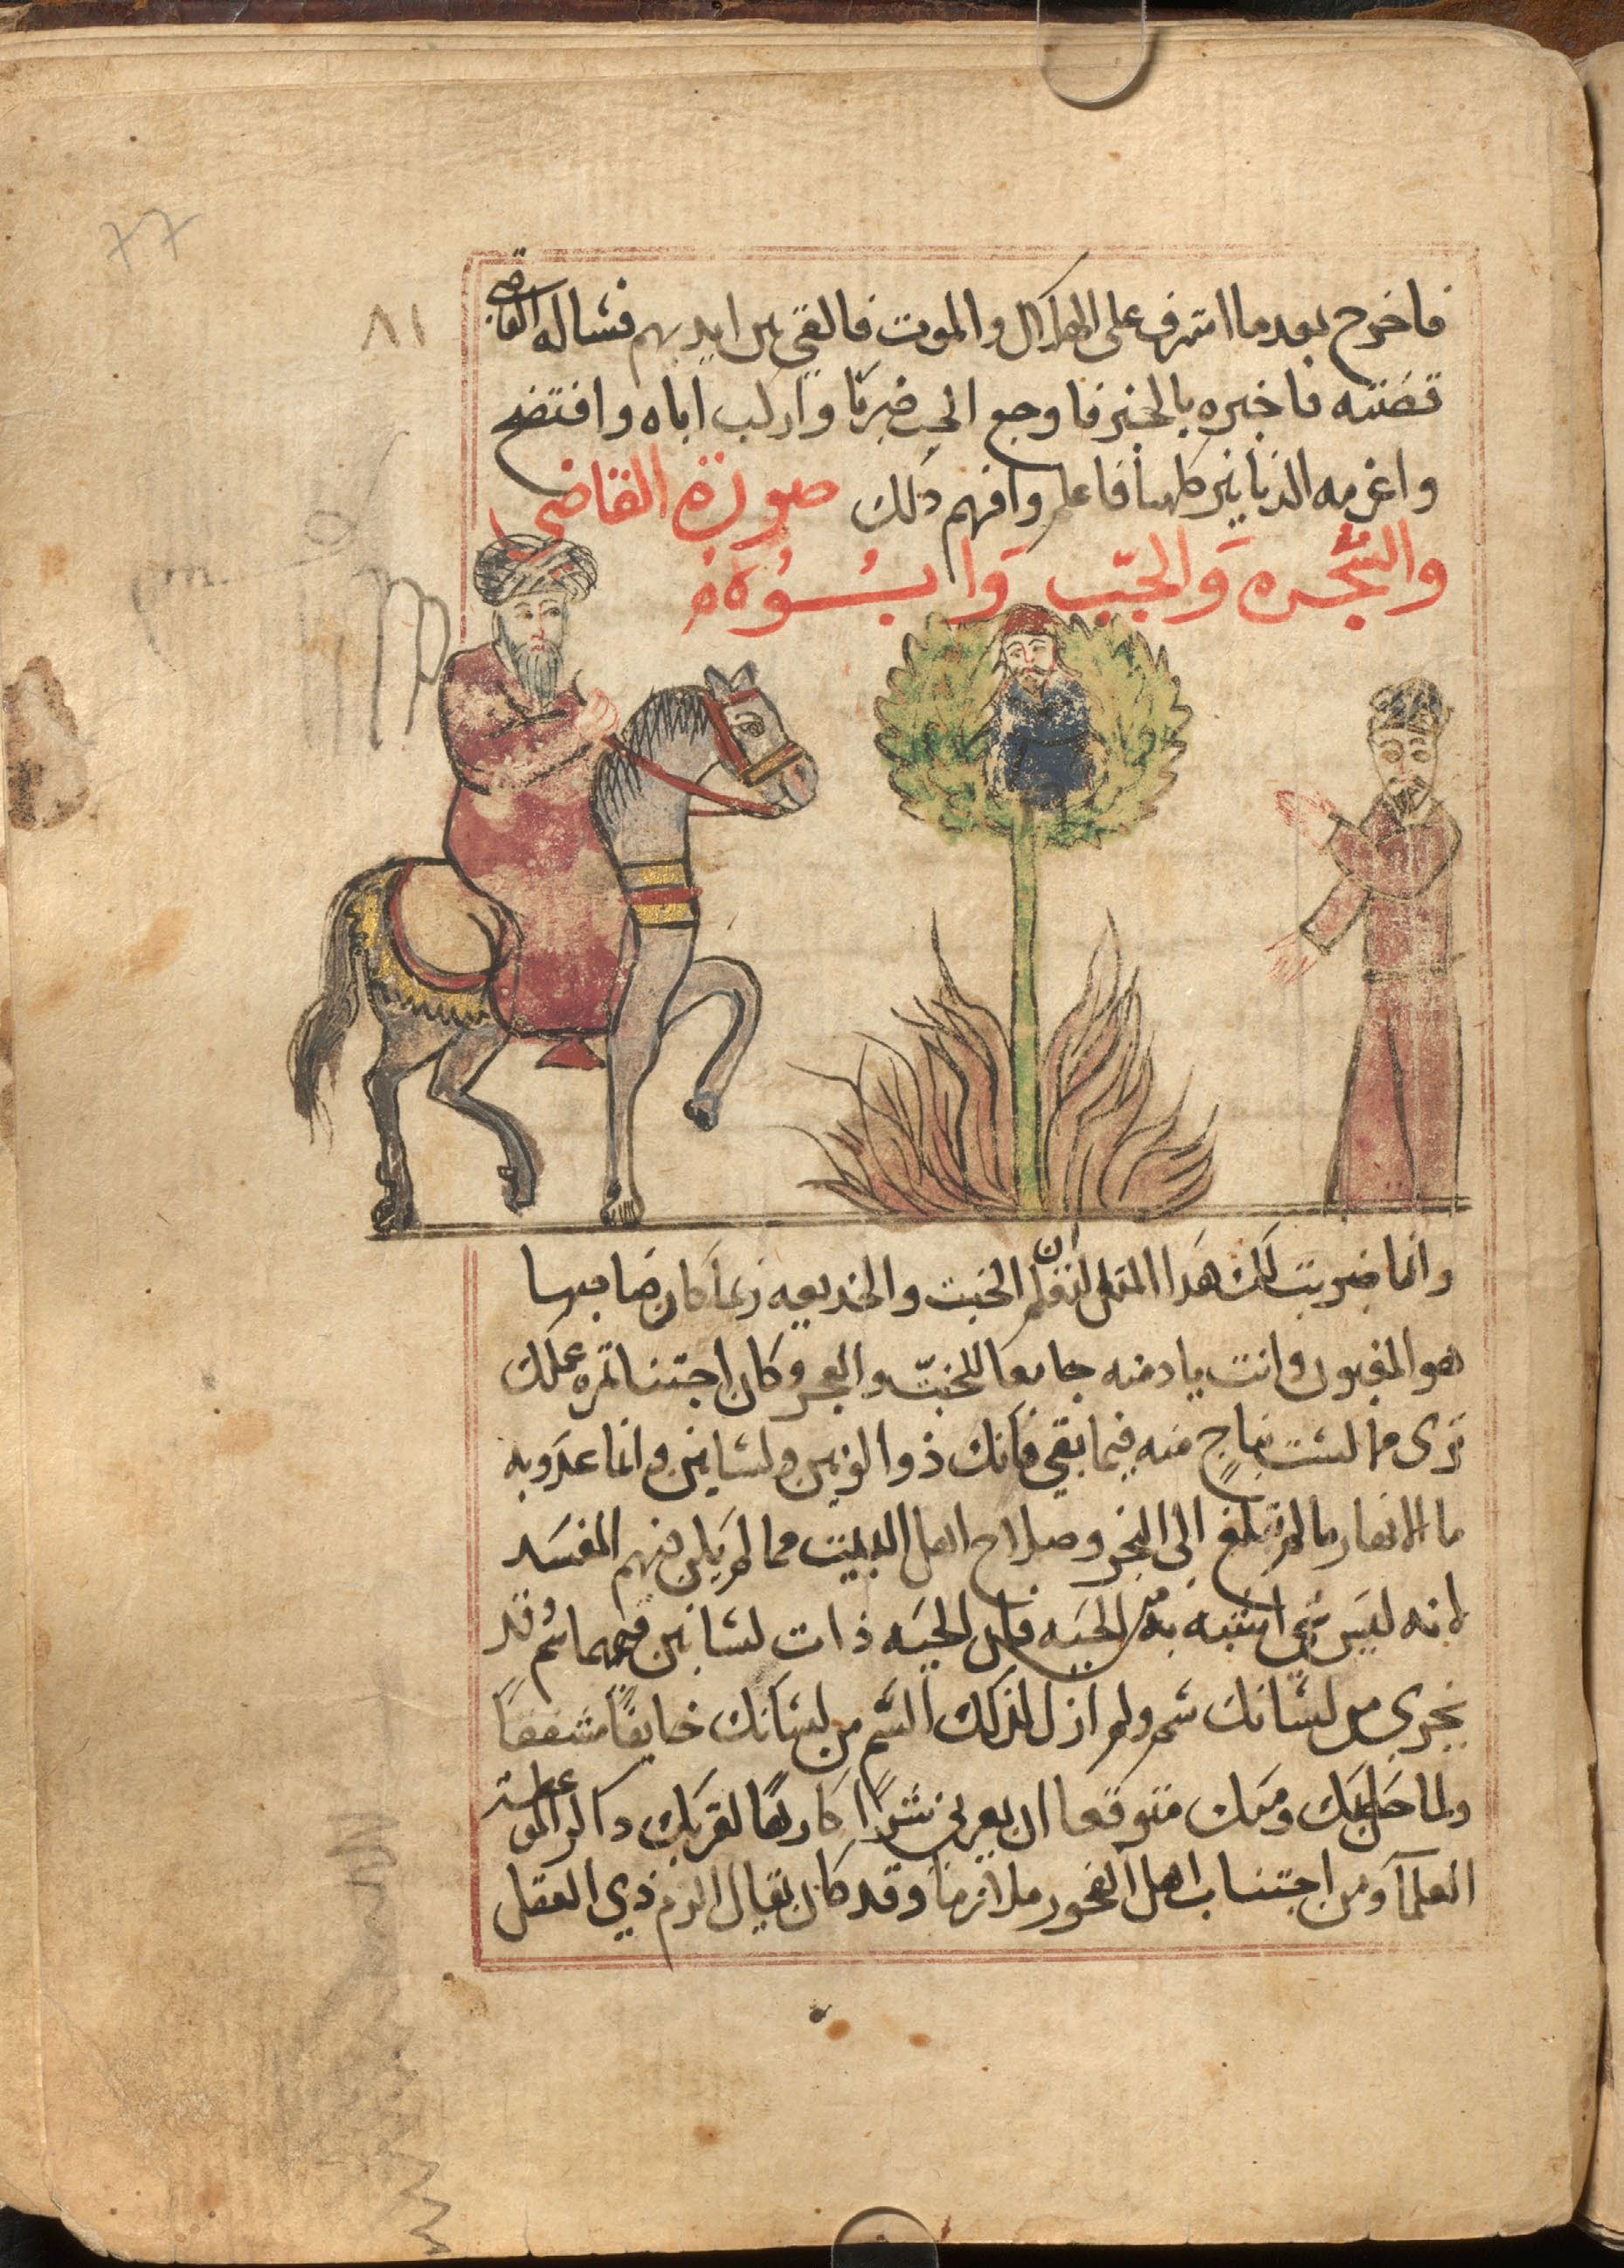 77
٨١
فاخرج بعد ما اشرف على الهلاك والموت فالقي بين ايديهم فساله القاضي
قصته فاخبره بالخبر فاوجع الخب ضربًا واركب اباه وافتضح
واغرمه الدنانير كلها فاعلم وافهم ذلك صورة القاضي
والشجره والخبّ وابُوه
وانما ضربت لك هذا المثل لتعلم ان الخبث والخديعه ربما كان صاحبها
هو المغبون وانت يا دمنه جامعا للخبّ والعجز وكان اجتنا ثمره عملك
ترى مما لست بناجٍ منه فيما بقي فانك ذوا لونين ولسانين وانما عذوبه
ما الانهار ما لم تبلغ الى البحر وصلاح اهل البيت مما لم يكن فيهم المفسد
لانه ليس شي اشبه بك من الحيه فان الحيه ذات لسانين فيهما سُم وقد
يجري من لسانك سم ولم ازل لذلك السُم من لسانك خايفًا مشفقًا
ولما حل بك ومنك متوقعا ان يعريني شرًا كارهًا لقربك ذاكر الموعظة
العلمآ ومن اجتناب اهل الفجور ملازما وقد كان يقال الزم ذي العقل